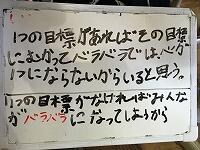 1つの目標があればその目標
にむかってバラバラでは、心が
1つにならないからいると思う。
1つの目標がなければみんな
がバラバラになってしまうから